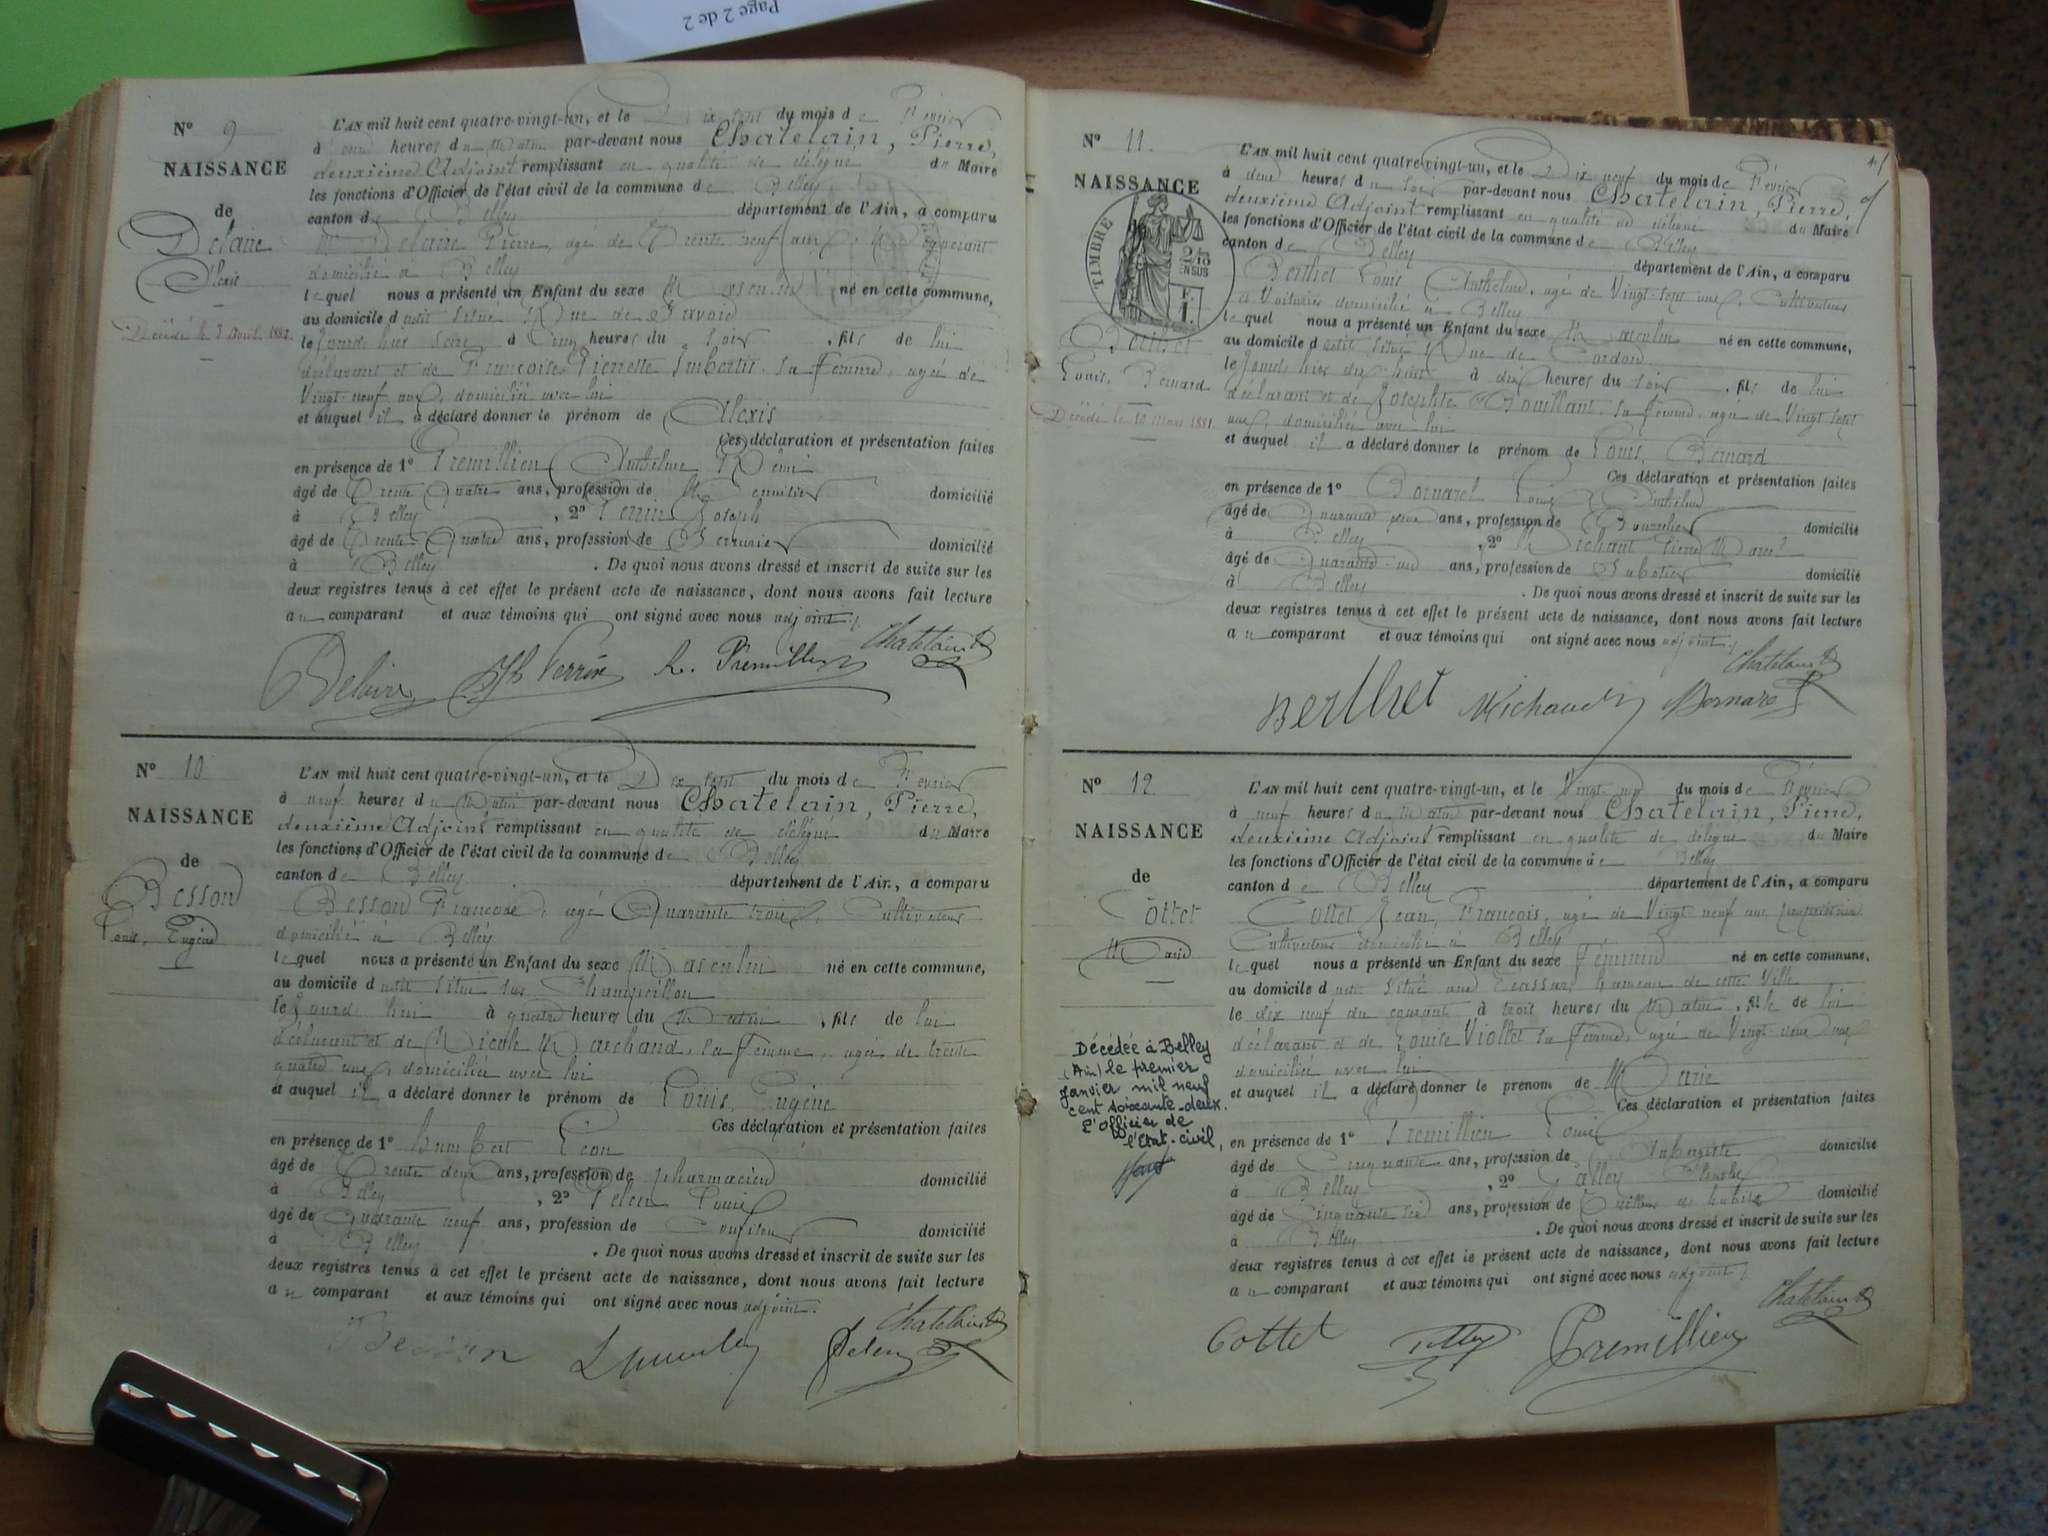 Page 2 de 2
N° 9
NAISSANCE
de
Delaire
Alexis
Décédé le 3 Avril 188
L'AN mil huit cent quatre-vingt-un, et le Dix sept du mois de Février
à heures du Matin par-devant nous Chatelain, Pierre,
deuxième Adjoint remplissant en qualité de délégué du Maire
les fonctions d'Officier de l'état civil de la commune de Belley
canton de Belley département de l'Ain, a comparu
M. Delaire Pierre, agé de Trente neuf ans,
domicilié à Belley
lequel nous a présenté un Enfant du sexe Masculin né en cette commune,
au domicile dudit situé Rue de Savoie
le jour d'hier seize à Cinq heures du soir, fils de lui
déclarant et de Françoise Pierrette Imbertis, sa femme, agée de
Vingt neuf ans, domiciliée avec lui
et auquel il a déclaré donner le prénom de Alexis
Ces déclaration et présentation faites
en présence de 1° Premillieu Anthelme Rémi
âgé de Trente Quatre ans, profession de Menuisier domicilié
à Belley, 2° Perrin Joseph
âgé de Trente Quatre ans, profession de Serrurier domicilié
à Belley. De quoi nous avons dressé et inscrit de suite sur les
deux registres tenus à cet effet le présent acte de naissance, dont nous avons fait lecture
au comparant et aux témoins qui ont signé avec nous adjoint.
Delaire Jh Perrin R. Premillieu Chatelain
N° 10
NAISSANCE
de
Besson
Louis, Eugène
L'AN mil huit cent quatre-vingt-un, et le Dix sept du mois de Février
à neuf heures du Matin par-devant nous Chatelain, Pierre,
deuxième Adjoint remplissant en qualité de délégué du Maire
les fonctions d'Officier de l'état civil de la commune de Belley
canton de Belley département de l'Ain, a comparu
Besson François, agé Quarante trois, Cultivateur
domicilié à Belley
lequel nous a présenté un Enfant du sexe Masculin né en cette commune,
au domicile dudit situé sur Champeillon
le jourd'hui à quatre heures du Matin, fils de lui
déclarant et de Nicole Marchand, sa femme, agée de trente
quatre ans, domiciliée avec lui
et auquel il a déclaré donner le prénom de Louis, Eugène
Ces déclaration et présentation faites
en présence de 1° Humbert Léon
âgé de Trente deux ans, profession de pharmacien domicilié
à Belley, 2° Pelen Louis
âgé de Quarante neuf ans, profession de domicilié
à Belley. De quoi nous avons dressé et inscrit de suite sur les
deux registres tenus à cet effet le présent acte de naissance, dont nous avons fait lecture
au comparant et aux témoins qui ont signé avec nous adjoint.
Besson Pelen Chatelain
N° 11.
NAISSANCE
TIMBRE
2/10
EN SUS
F.
1.
Berthet
Louis, Bernard
Décédé le 10 Mars 1881.
L'AN mil huit cent quatre-vingt-un, et le Dix neuf du mois de Février
à deux heures du soir par-devant nous Chatelain, Pierre,
deuxième Adjoint remplissant en qualité de délégué du Maire
les fonctions d'Officier de l'état civil de la commune de Belley
canton de Belley département de l'Ain, a comparu
Berthet Louis Anthelme, agé de Vingt sept ans, Cultivateur
et Voiturier domicilié à Belley
lequel nous a présenté un Enfant du sexe Masculin né en cette commune,
au domicile dudit situé Rue de Cordon
le jour d'hier dix huit à dix heures du soir, fils de lui
déclarant et de Josephte Bouillant, sa femme, agée de Vingt sept
ans, domiciliée avec lui
et auquel il a déclaré donner le prénom de Louis, Bernard
Ces déclaration et présentation faites
en présence de 1° Louis Anthelme
âgé de Quarante ans, profession de Bourrelier domicilié
à Belley, 2° Pierre Marie
âgé de Quarante ans, profession de Sabotier domicilié
à Belley. De quoi nous avons dressé et inscrit de suite sur les
deux registres tenus à cet effet le présent acte de naissance, dont nous avons fait lecture
au comparant et aux témoins qui ont signé avec nous adjoint.
Chatelain
Berthet Michaud
N° 12
NAISSANCE
de
Cottet
Marie
Décédée à Belley
(Ain) le premier
janvier mil neuf
cent soixante-deux.
L'Officier de
l'Etat-civil,
L'AN mil huit cent quatre-vingt-un, et le Vingt un du mois de Février
à neuf heures du Matin par-devant nous Chatelain, Pierre,
deuxième Adjoint remplissant en qualité de délégué du Maire
les fonctions d'Officier de l'état civil de la commune de Belley
canton de Belley département de l'Ain, a comparu
Cottet Jean, François, agé de Vingt neuf ans, propriétaire
Cultivateur domicilié à Belley
lequel nous a présenté un Enfant du sexe Féminin né en cette commune,
au domicile dudit situé aux Ecassaz hameau de cette Ville
le dix neuf du courant à trois heures du Matin, fille de lui
déclarant et de Louise Viollet sa femme, agée de Vingt ans,
domiciliée avec lui
et auquel il a déclaré donner le prénom de Marie
Ces déclaration et présentation faites
en présence de 1° Premillieu Louis
âgé de Cinquante ans, profession de Aubergiste domicilié
à Belley, 2°
âgé de Cinquante six ans, profession de Tailleur d'habits domicilié
à Belley. De quoi nous avons dressé et inscrit de suite sur les
deux registres tenus à cet effet le présent acte de naissance, dont nous avons fait lecture
au comparant et aux témoins qui ont signé avec nous adjoint.
Chatelain
Cottet Premillieu